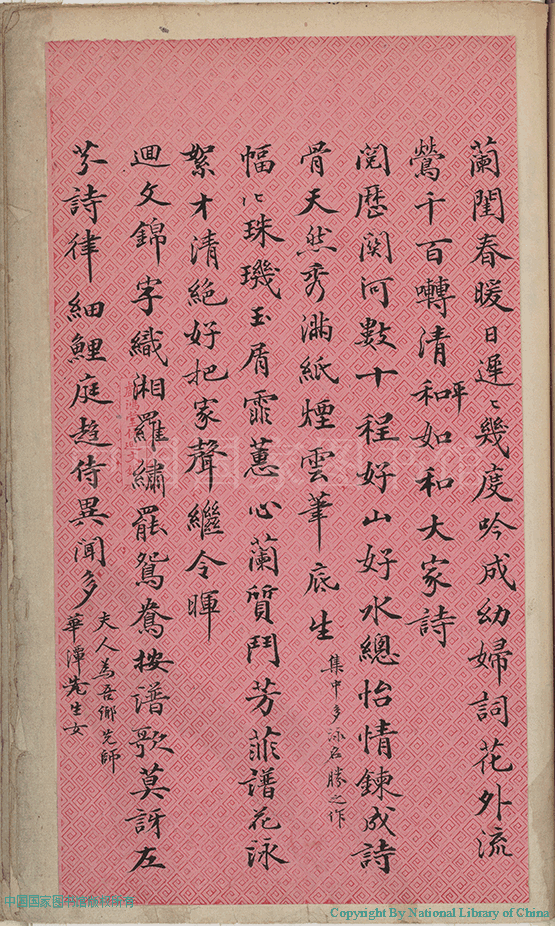 蘭閨春暖日遲〻幾度吟成幼婦詞花外流
鶯千百囀清和平如和大家詩
閱歷関河數十程好山好水總怡情鍊成詩
骨天然秀滿紙煙雲筆底生
集中多詠名勝之作
幅〻珠璣玉屑霏蕙心蘭質鬥芳菲譜花詠
絮才清絕好把家聲繼令暉
迴文錦字織湘羅繡罷鴛鴦按譜歌莫訝左
芬詩律細鯉庭趍侍異聞多
夫人為吾鄉先師
華潭先生女
中国国家图书馆
中国国家图书馆版权所有
Copyright By National Library of China